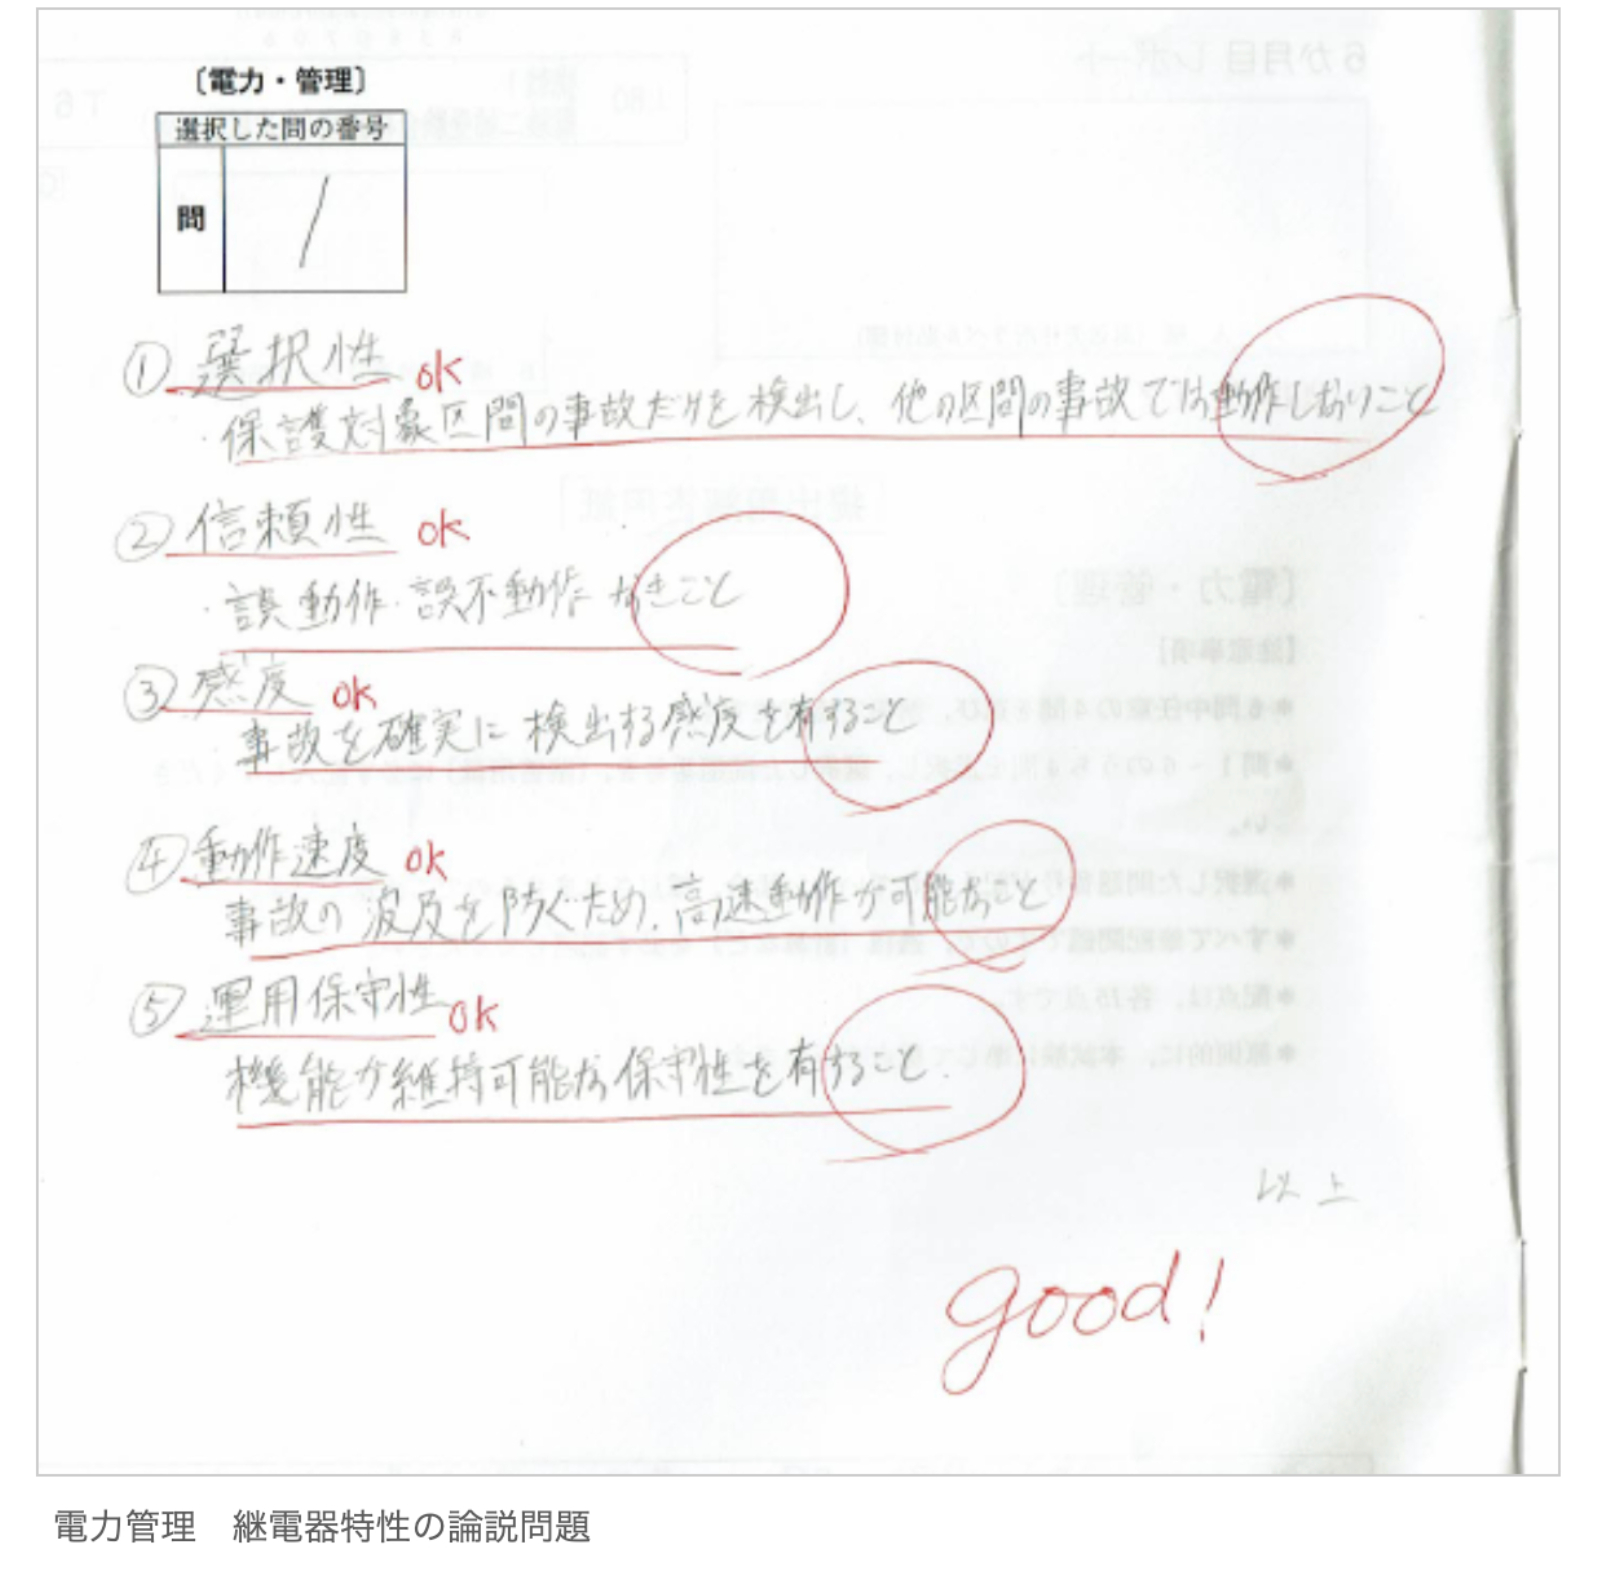 〔電力・管理〕
選択した問の番号
問 1
① 選択性 ok
・保護対象区間の事故だけを検出し、他の区間の事故では動作しないこと
② 信頼性 ok
・誤動作・誤不動作なきこと
③ 感度 ok
事故を確実に検出する感度を有すること
④ 動作速度 ok
事故の波及を防ぐため、高速動作が可能なこと
⑤ 運用保守性 ok
機能が維持可能な保守性を有すること.
以上
good!
電力管理　継電器特性の論説問題